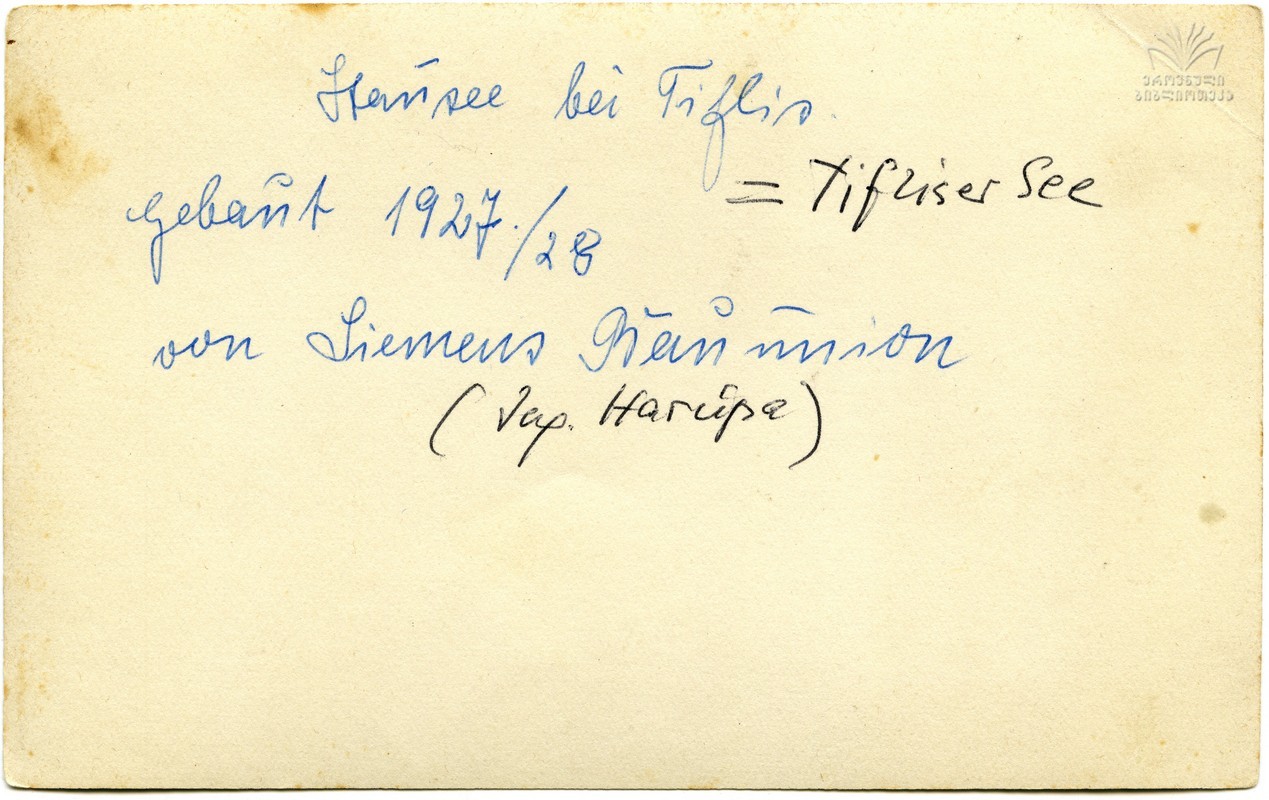 Stausee bei Tiflis.
= Tifliser See
gebaut 1927./28
von Siemens Bauunion
(Ing. Harupa)
ეროვნული
ბიბლიოთეკა